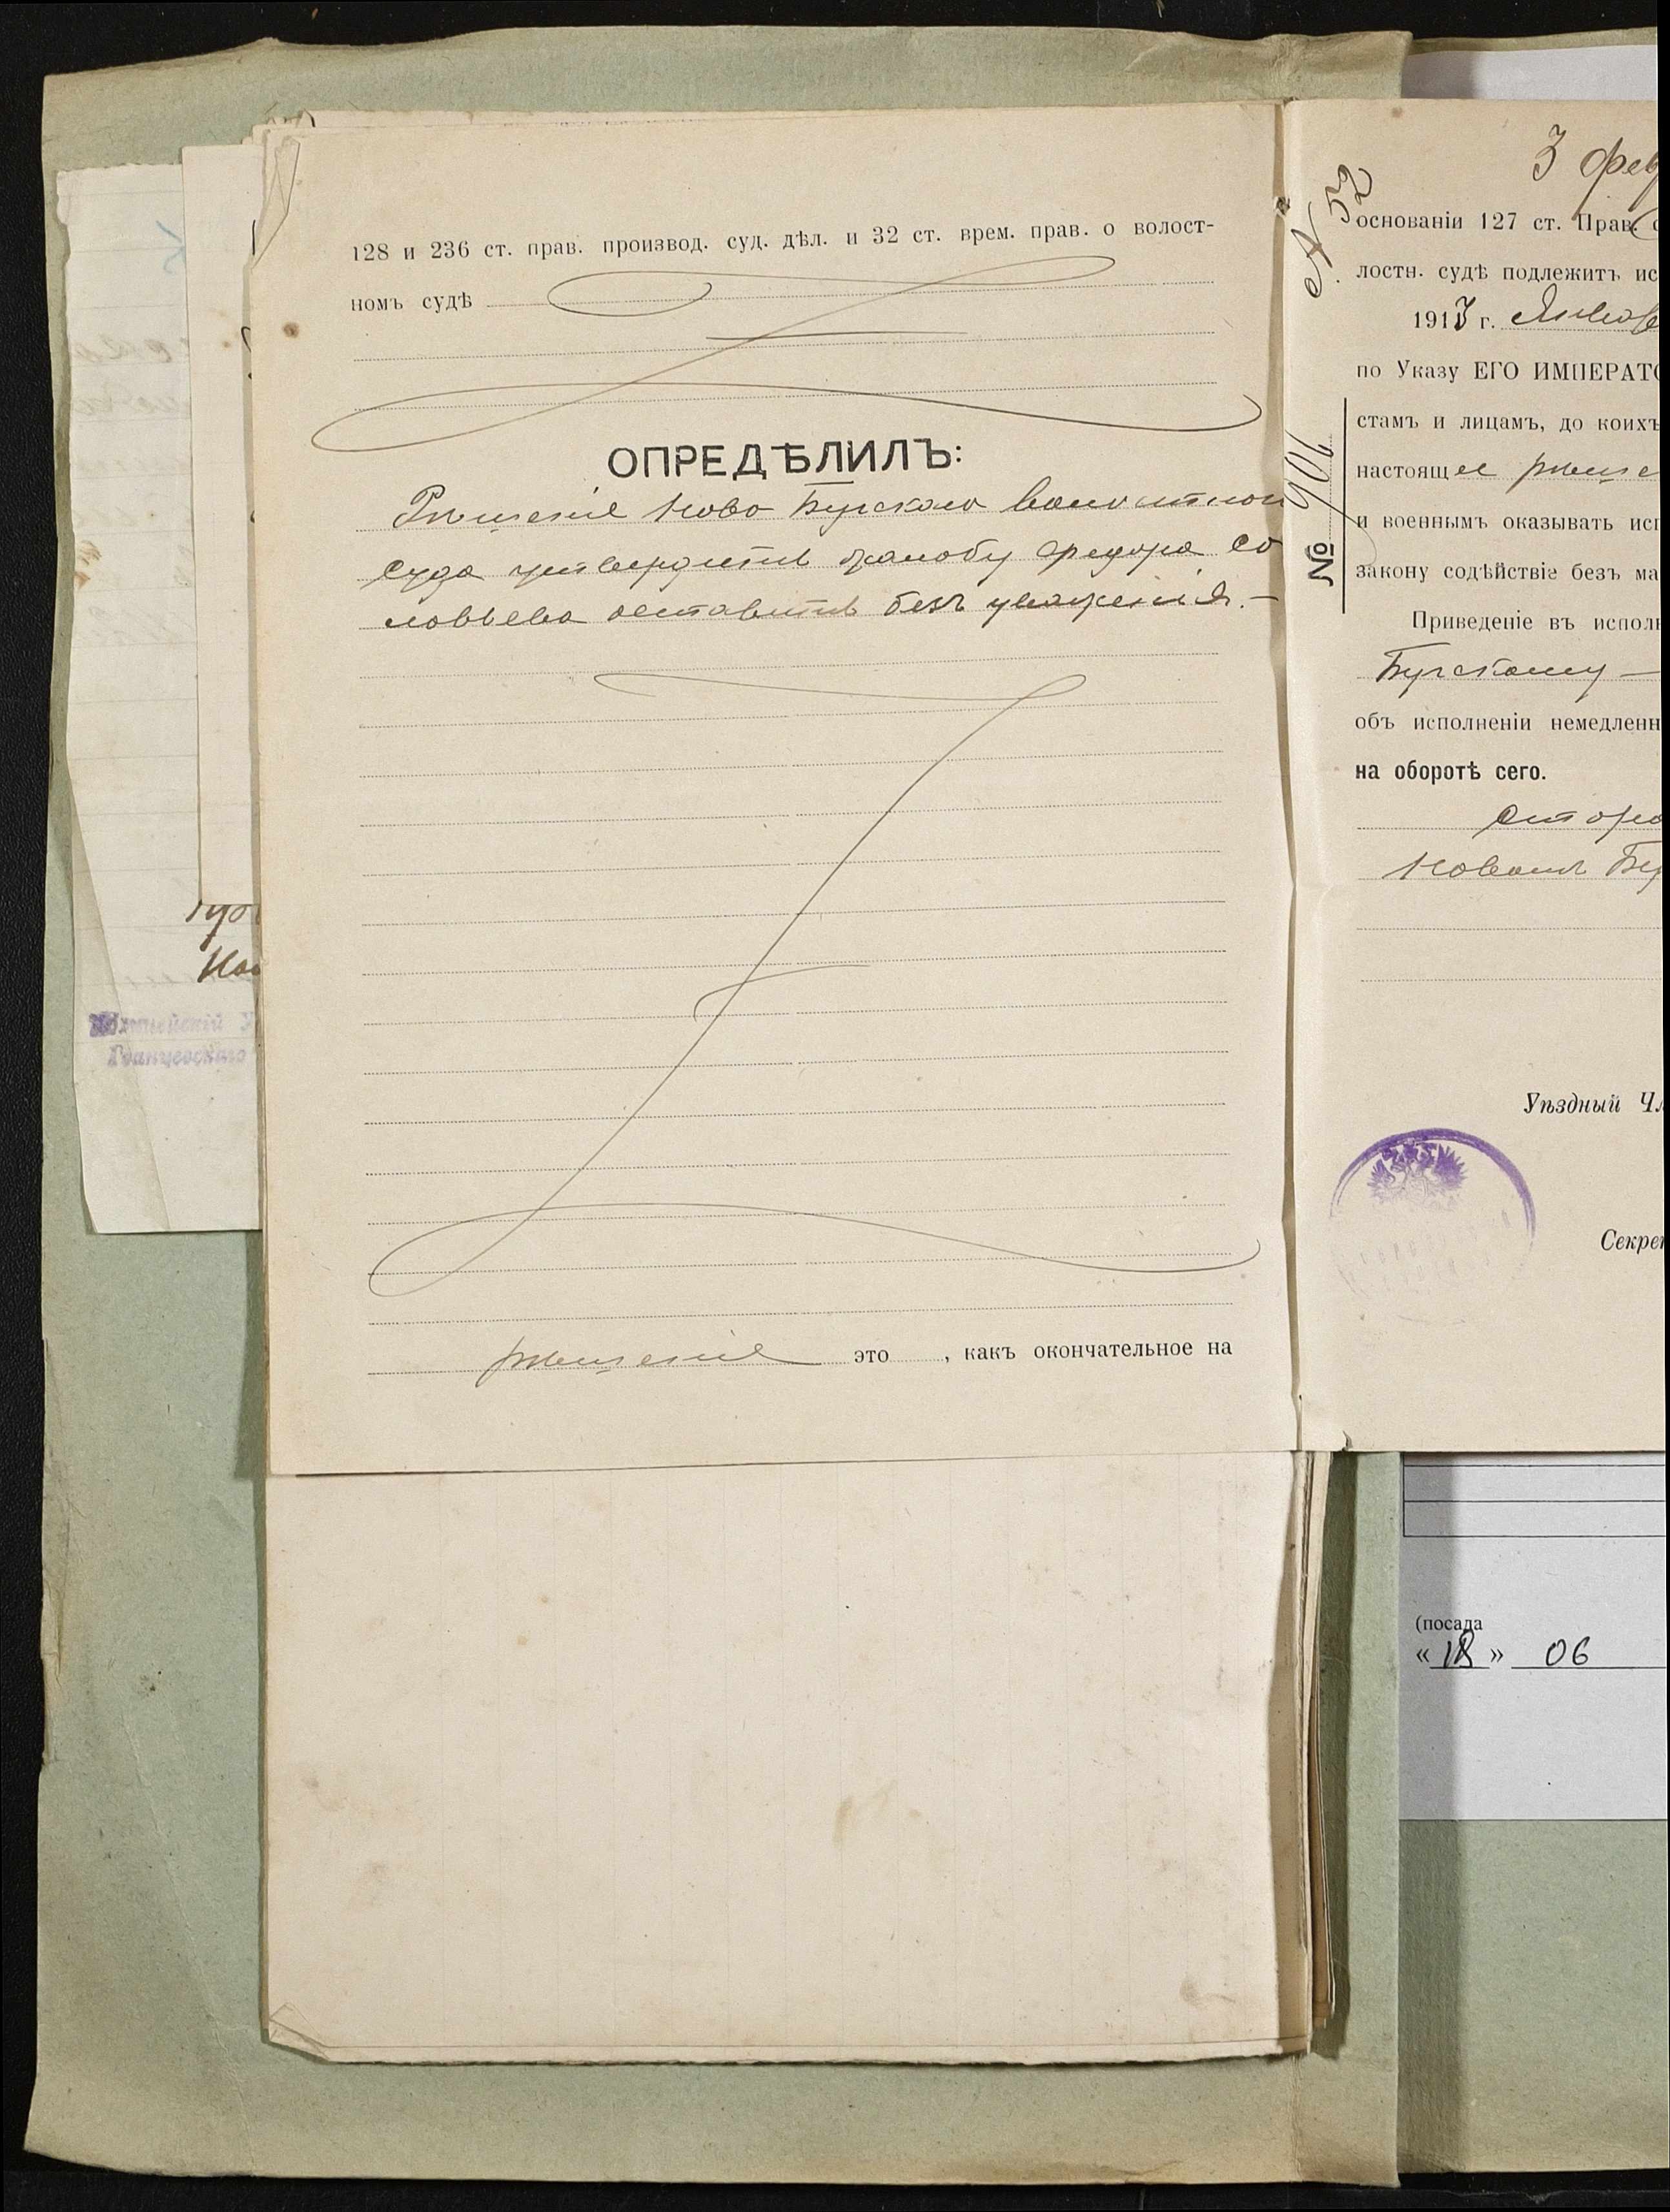 128 и 236 ст. прав. производ. суд. дѣл. и 32 ст. врем. прав. о волост-
номъ судѣ
ОПРЕДѢЛИЛЪ:
Рѣшеніе Ново Бугскаго волостног
Суда утвердить жалобу Федора Со
ловьева оставить безъ уваженія. –
рѣшеніе это , какъ окончательное на
3 фев
№ 52
основаніи 127 ст. Прав. о
лостн. судѣ подлежитъ ис
1913 г. Января
по Указу ЕГО ИМПЕРАТО
стамъ и лицамъ, до коихъ
настоящее рѣше
и военнымъ оказывать исп
закону содѣйствіе безъ ма
№ 906
Приведеніе въ исполн
Бугскому –
объ исполненіи немедленн
на оборотѣ сего.
сторо
Новый Бу
Уѣздный Чл
Секрет
(посада
«18» 06